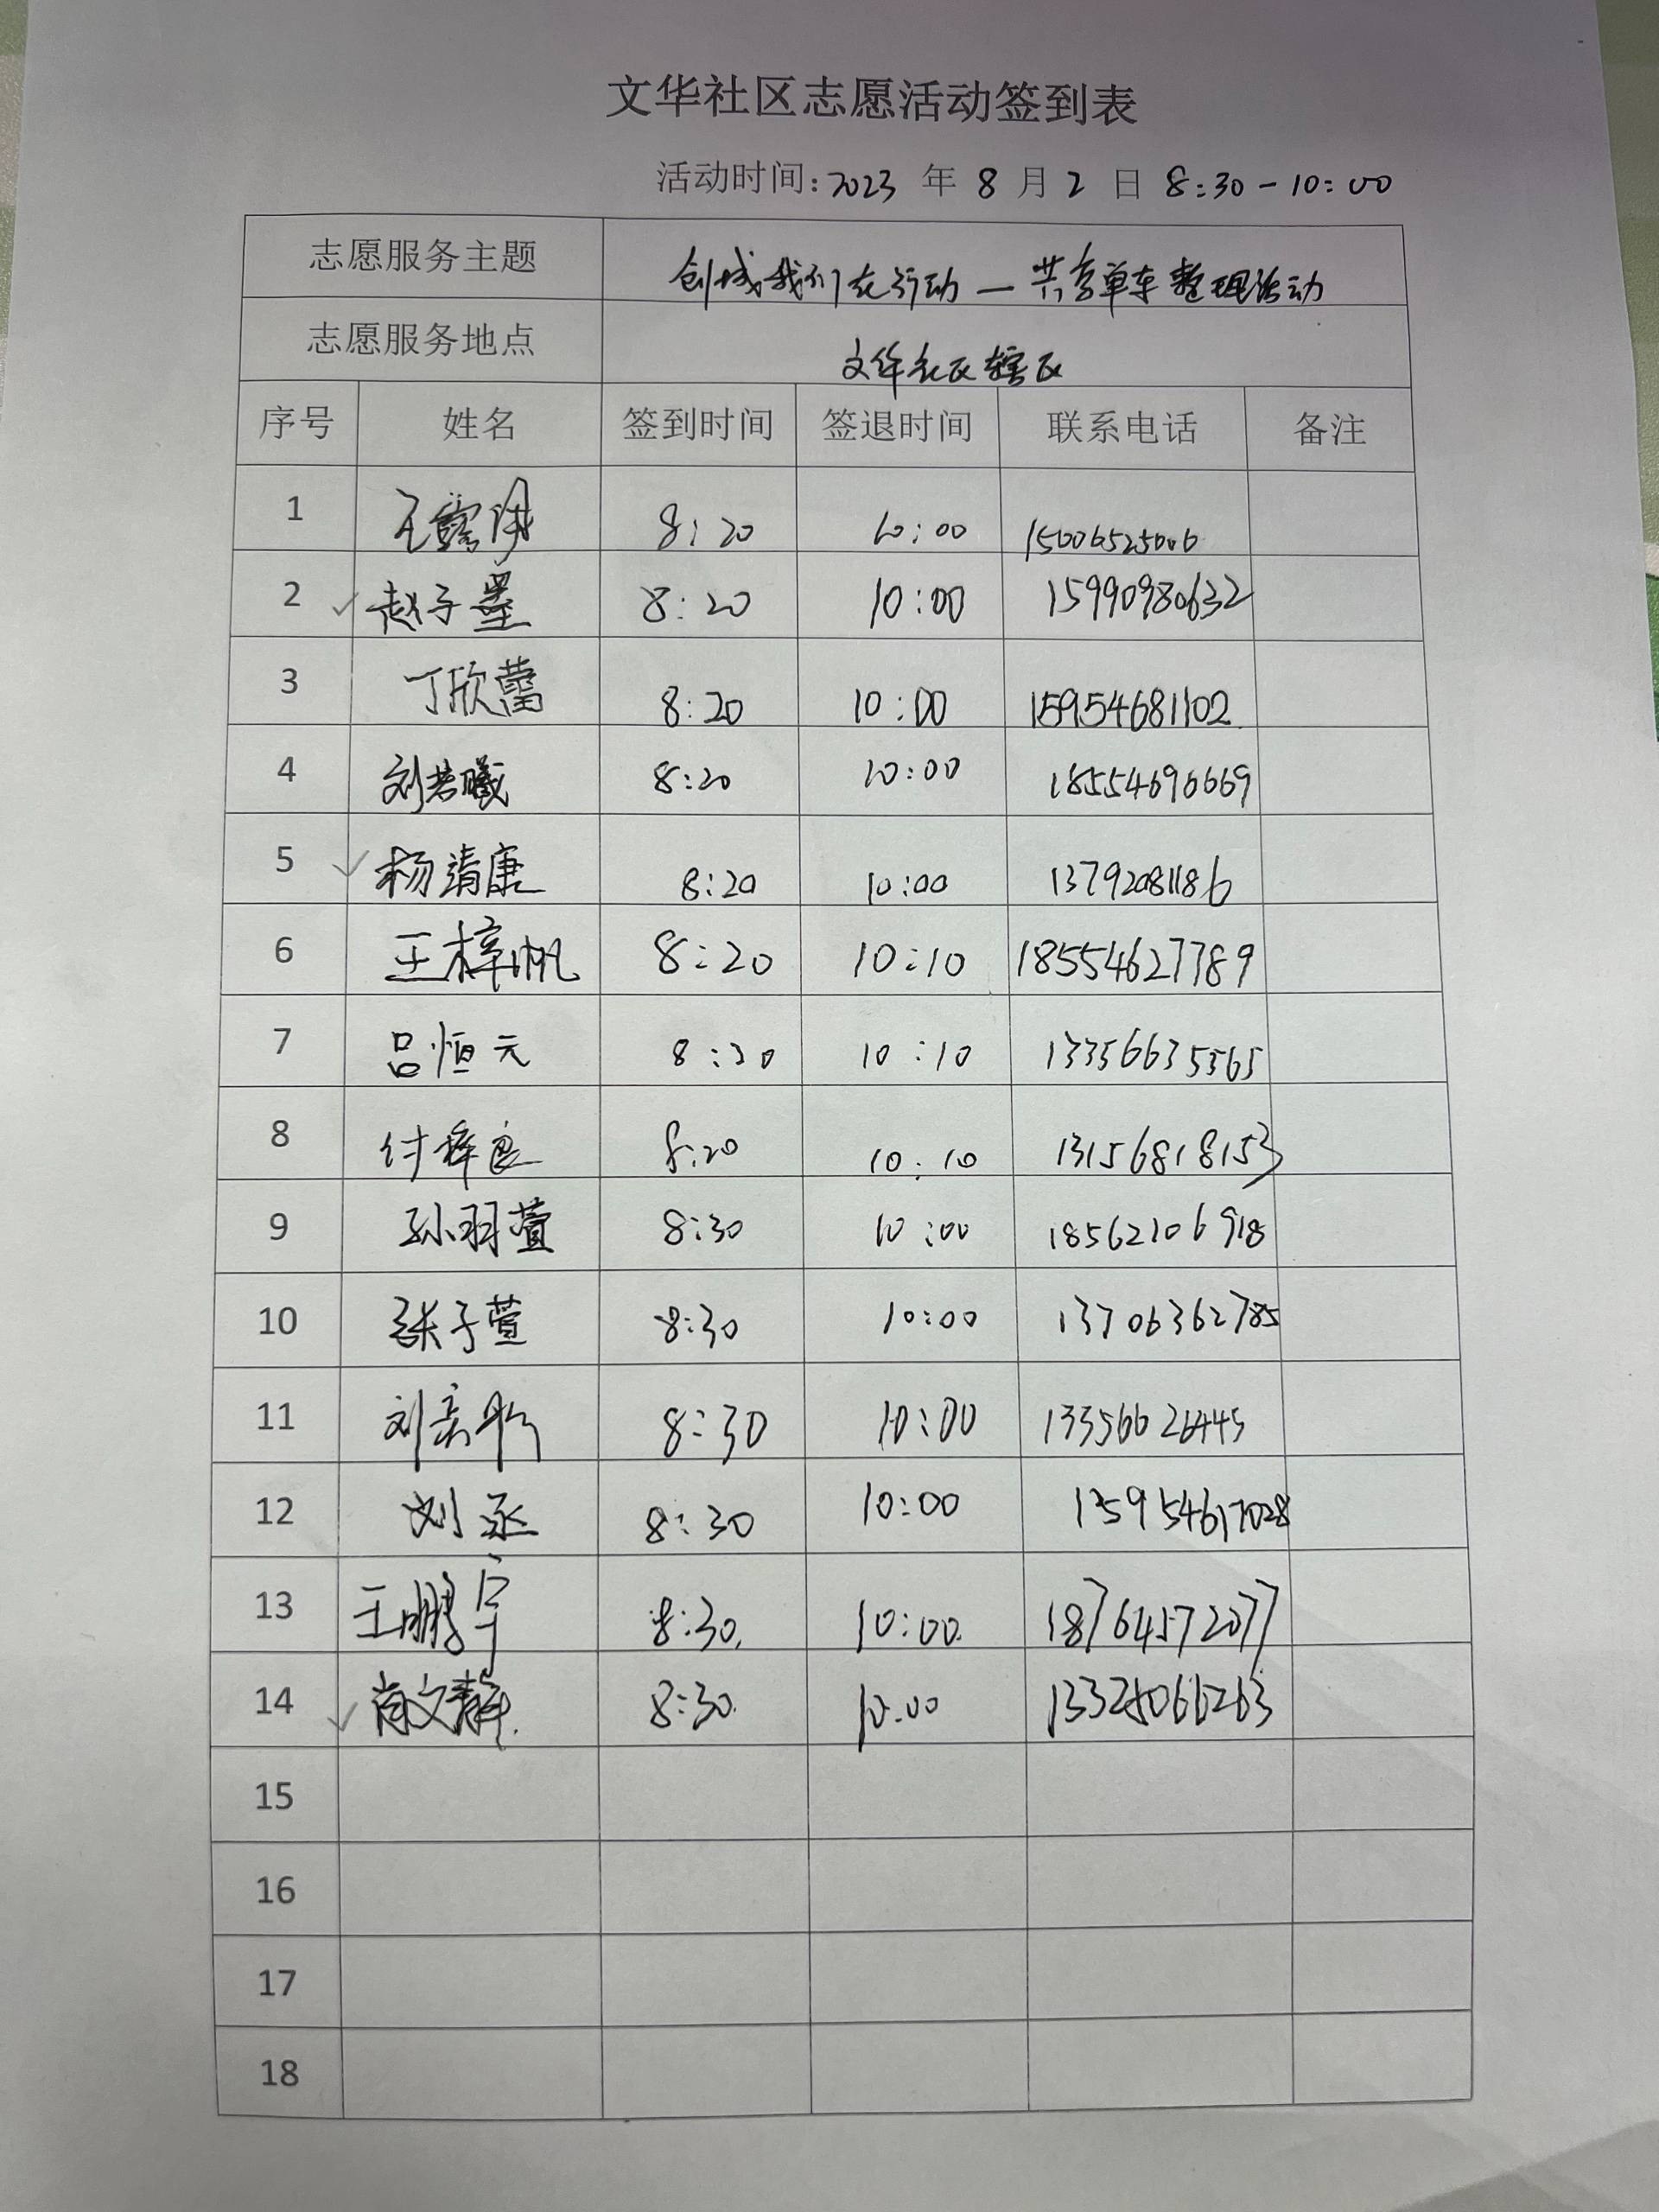 文华社区志愿活动签到表
活动时间:2023 年 8 月 2 日 8:30-10:00
志愿服务主题 创城我们在行动—共享单车整理活动
志愿服务地点 文华社区辖区
序号 姓名 签到时间 签退时间 联系电话 备注
1 8:20 10:00
2 赵子墨 8:20 10:00 15990980632
3 丁欣蕾 8:20 10:00 15954681102
4 刘若曦 8:20 10:00 18554696669
5 杨靖康 8:20 10:00 13792081186
6 王梓帆 8:20 10:10 18554627789
7 吕恒元 8:20 10:10 13356635565
8 付梓良 8:20 10:10 13156818153
9 孙羽萱 8:30 10:00 18562106918
10 张子萱 8:30 10:00 13706362785
11 8:30 10:00 13356626445
12 刘丞 8:30 10:00 135954617028
13 王鹏宇 8:30 10:00 18764572077
14 肖文静 8:30 10:00 13325066263
15
16
17
18